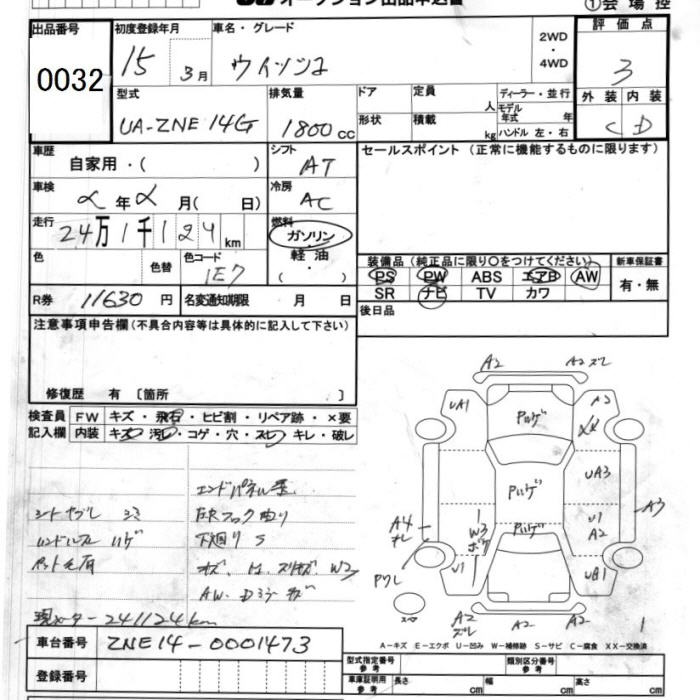 オークション出品申込書
①会場控
出品番号 0032
初度登録年月 15 3月
車名・グレード ウィッシュ
2WD・4WD
評価点 3
外装 C 内装 D
型式 UA-ZNE14G
排気量 1800cc
ドア 定員 人 ディーラー・並行
形状 積載 kg モデル年式 年 ハンドル 左・右
車歴 自家用・( )
シフト AT
セールスポイント(正常に機能するものに限ります)
車検 年 月( 日)
冷房 AC
走行 24万1千124km
燃料 ガソリン・軽油・( )
色 色替 色コード 1E7
装備品(純正品に限り○をつけてください) 新車保証書
PS PW ABS エアB AW 有・無
SR ナビ TV カワ
R券 11630円 名変通知期限 月 日
後日品
注意事項申告欄(不具合内容等は具体的に記入して下さい)
修復歴 有〔箇所 〕
検査員 FW キズ・飛石・ヒビ割・リペア跡・×要
記入欄 内装 キズ・汚レ・コゲ・穴・スレ・キレ・破レ
シートヨゴレ シミ
ハンドル ハゲ
ペット毛有
現メーター241124km
エンドパネル
下廻りS
AW.Dミラー キズ
A2 A2
UA1
Pハゲ
A3
XX
UA3
Pハゲ
A3
A4
W3
U1
A2
Pハゲ
U1
UB1
A2 A2
A2
1
A-キズ E-エクボ U-凹み W-補修跡 S-サビ C-腐食 XX-交換済
車台番号 ZNE14-0001473
登録番号
型式指定番号 参考 類別区分番号 参考
車庫証明用 参考 長さ cm 幅 cm 高さ cm